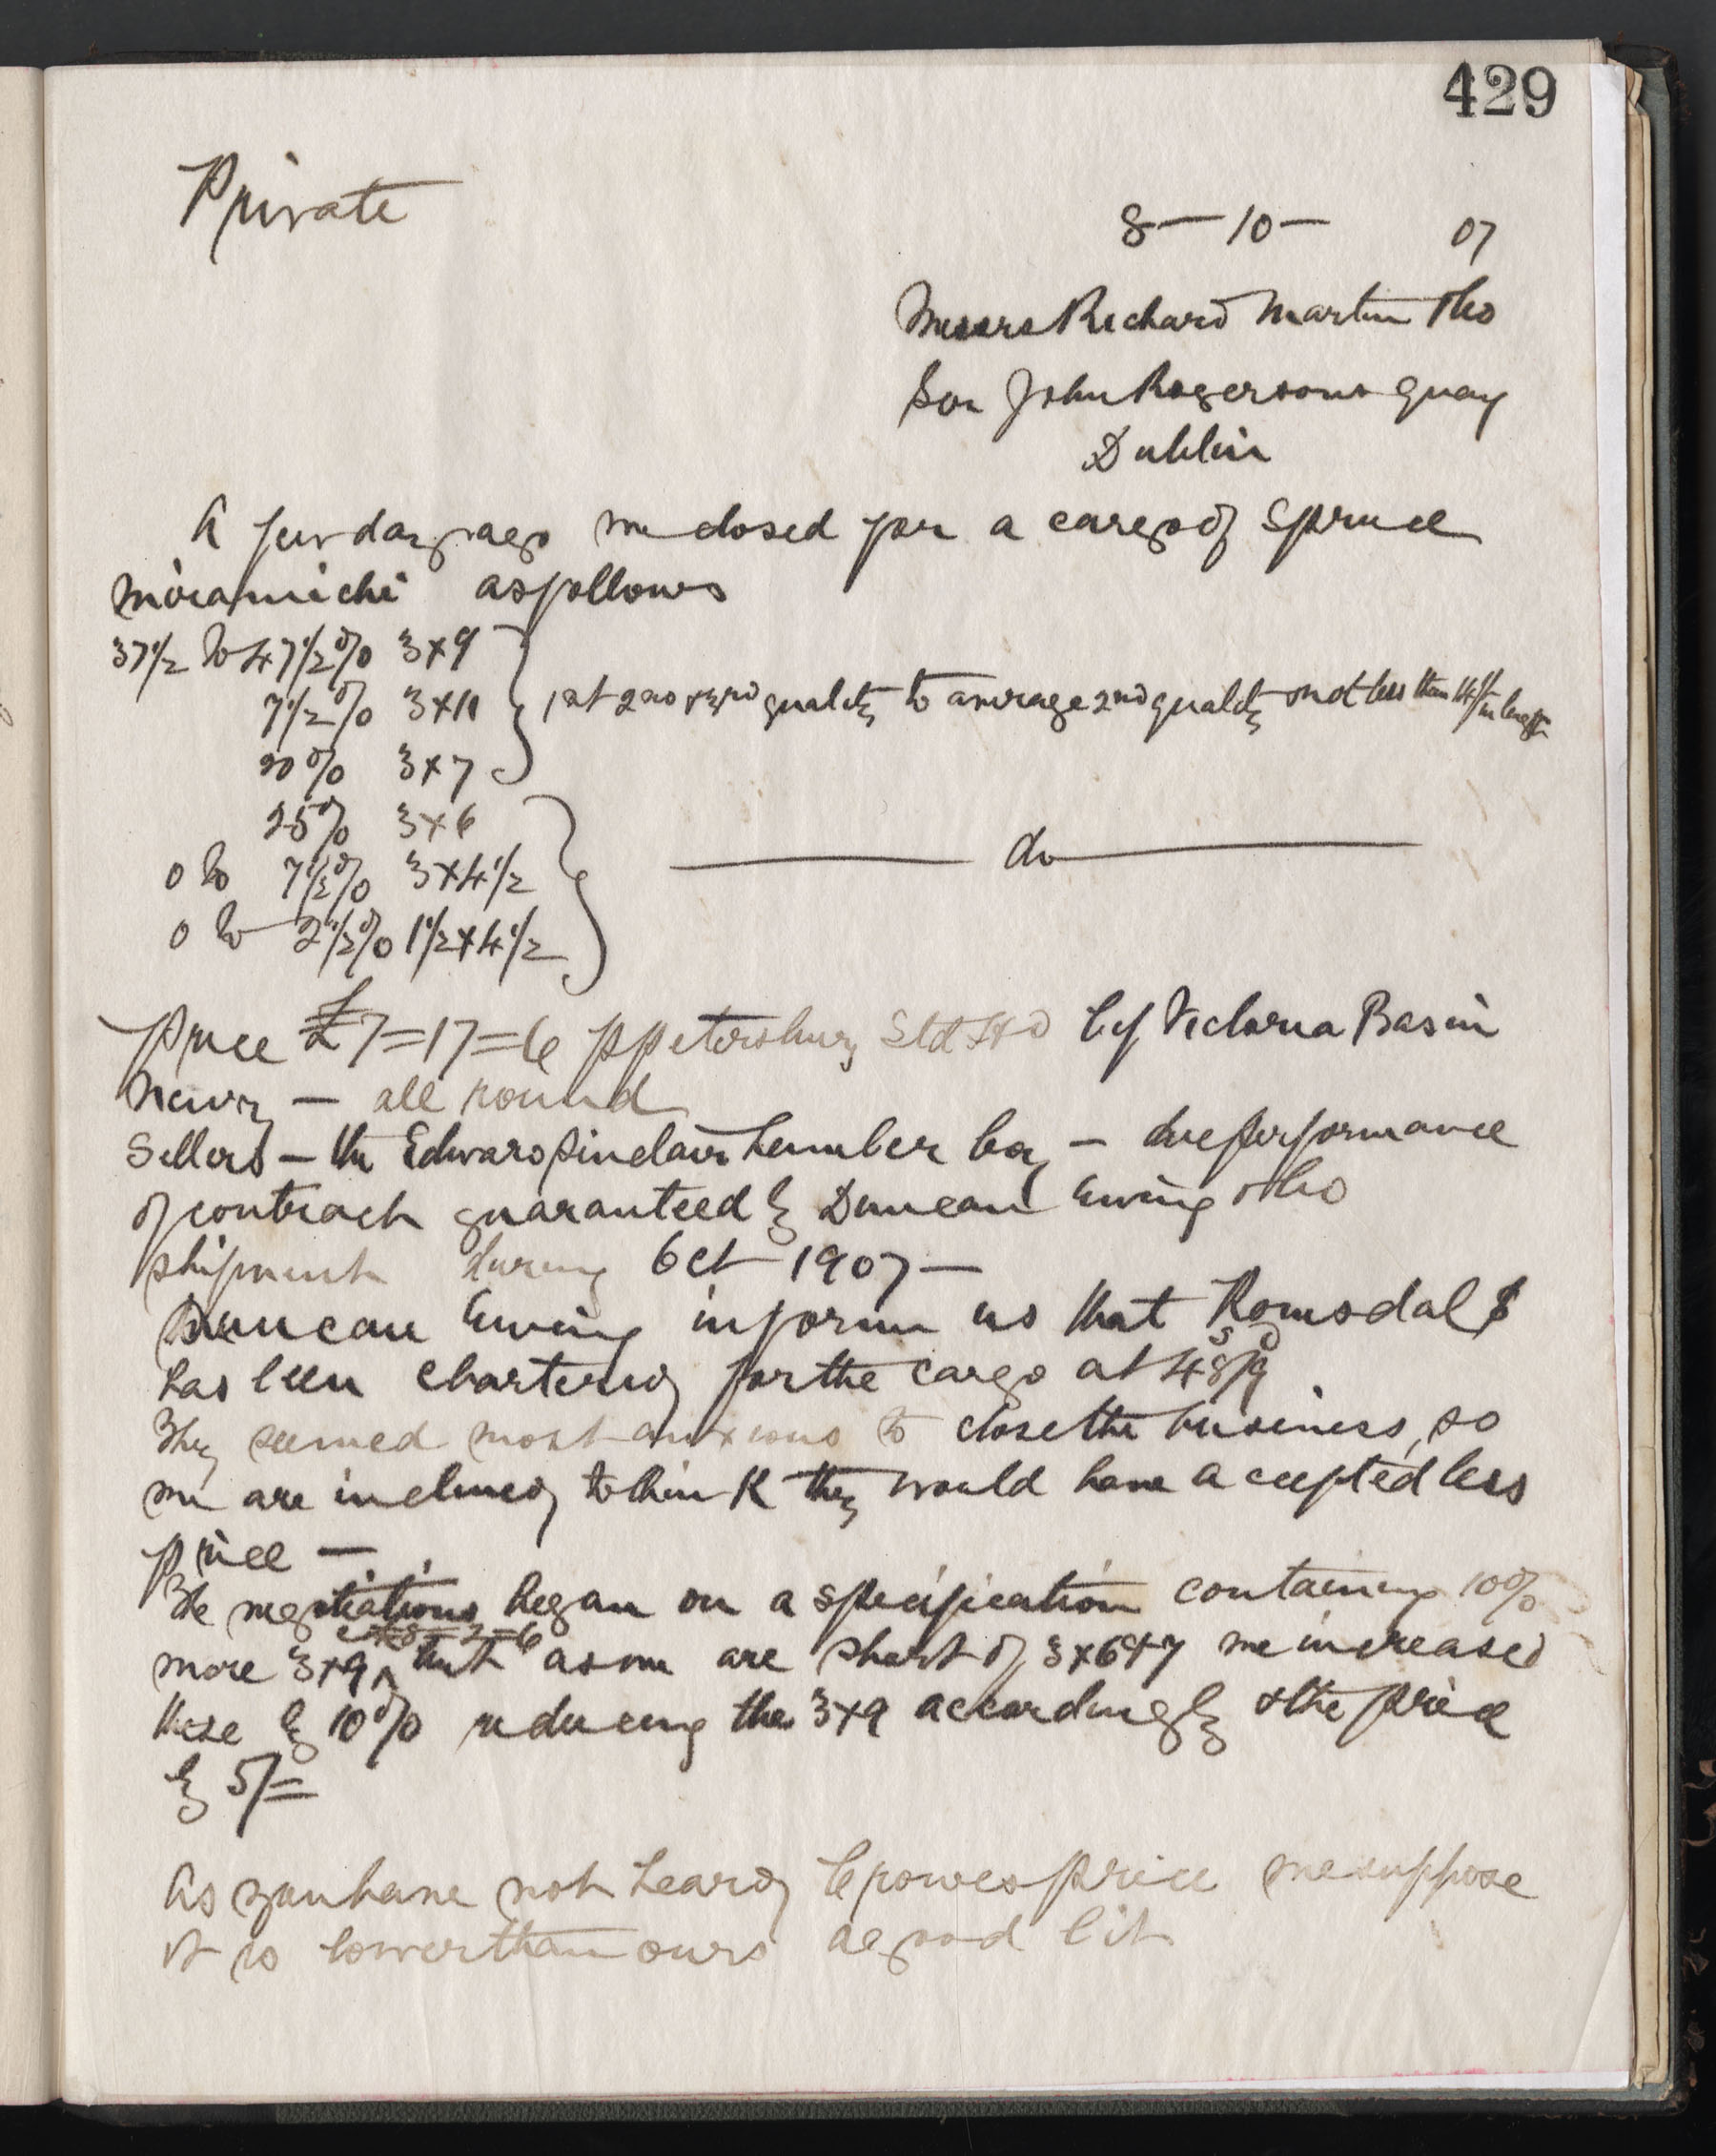 429
Private
8 — 10 — 07
Messrs Richard Martin & Co
Sir John Rogersons Quay
Dublin
A few days ago we closed for a cargo of Spruce
Miramichi as follows
37½ to 47½% 3x9
7½% 3x11 1st 2nd & 3rd quality to average 2nd quality & not less than 14 ft in length
20% 3x7
25% 3x6
0 to 7½% 3x4½ — do —
0 to 2½% 1½x4½
Price £7=17=6 p Petersburg Std cif Victoria Basin
Newry — all round
Sellers — the Edward Sinclair Lumber Coy — due performance
of contract guaranteed by Duncan Ewing & Co
shipment during Oct 1907 —
Duncan Ewing inform us that Romsdal
has been chartered for the cargo at 48s/9d
They seemed most anxious to close the business, so
we are inclined to think they would have accepted less
price —
The negotiations began on a specification containing 10%
more 3x9, @ £8=2=6 but as we are short of 3x6 & 7 we increased
these by 10% reducing the 3x9 accordingly & the price
by 5/=
As you have not heard price we suppose
it is lower than ours a good bit